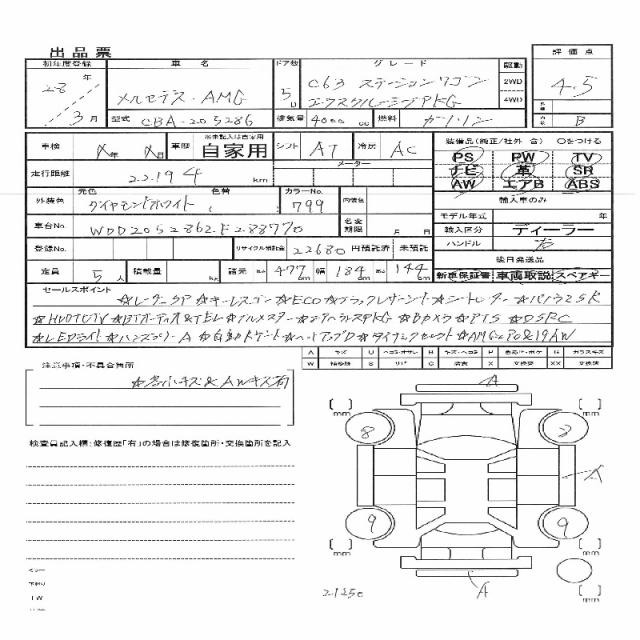 出品票
初年度登録 車名 ドア数 グレード 駆動 評価点
28年 3月 メルセデス・AMG 5D C63 ステーションワゴン 2WD 4.5
エクスクルーシブPKG 4WD
型式 CBA-205286 排気量 4000 cc 燃料 ガソリン B
※未記入は自家用
車検 年 月 車歴 自家用 シフト AT 冷房 AC
装備品(純正/社外 含) ○をつける
PS PW TV
ナビ 革 SR
AW エアB ABS
走行距離 22194 km メーター
輸入車のみ
外装色 元色 ダイヤモンドホワイト 色替 カラーNo. 799 内装色
モデル年式 年
車台No. WDD2052862F288770 名義期限 月 日
輸入区分 ディーラー
ハンドル 右
登録No. リサイクル預託金 22680 円預託済 未預託
後日発送品
定員 5人 積載量 諸元 477 幅 184 144 cm
新車保証書 車両取説 スペアキー
セールスポイント
★レーダーSP ★キーレスゴー ★ECO ★ブラックレザーシート ★シートヒーター ★パノラマSR
★HDDTV ★BTオーディオ&TEL ★ブルメスター ★Bカメラ ★PTS ★DSRC
★LEDライト ★ハンズフリーA ★自動トランク ★ヘッドアップD ★ダイナミックセレクト ★AMGエアロ&19AW
注意事項・不具合箇所
★各小キズ&AWキズ有
検査員記入欄:修復歴「有」の場合は修復箇所・交換箇所を記入
A
[ ] mm [ ] mm
8
A
9 9
[ ] mm [ ] mm
21250 A